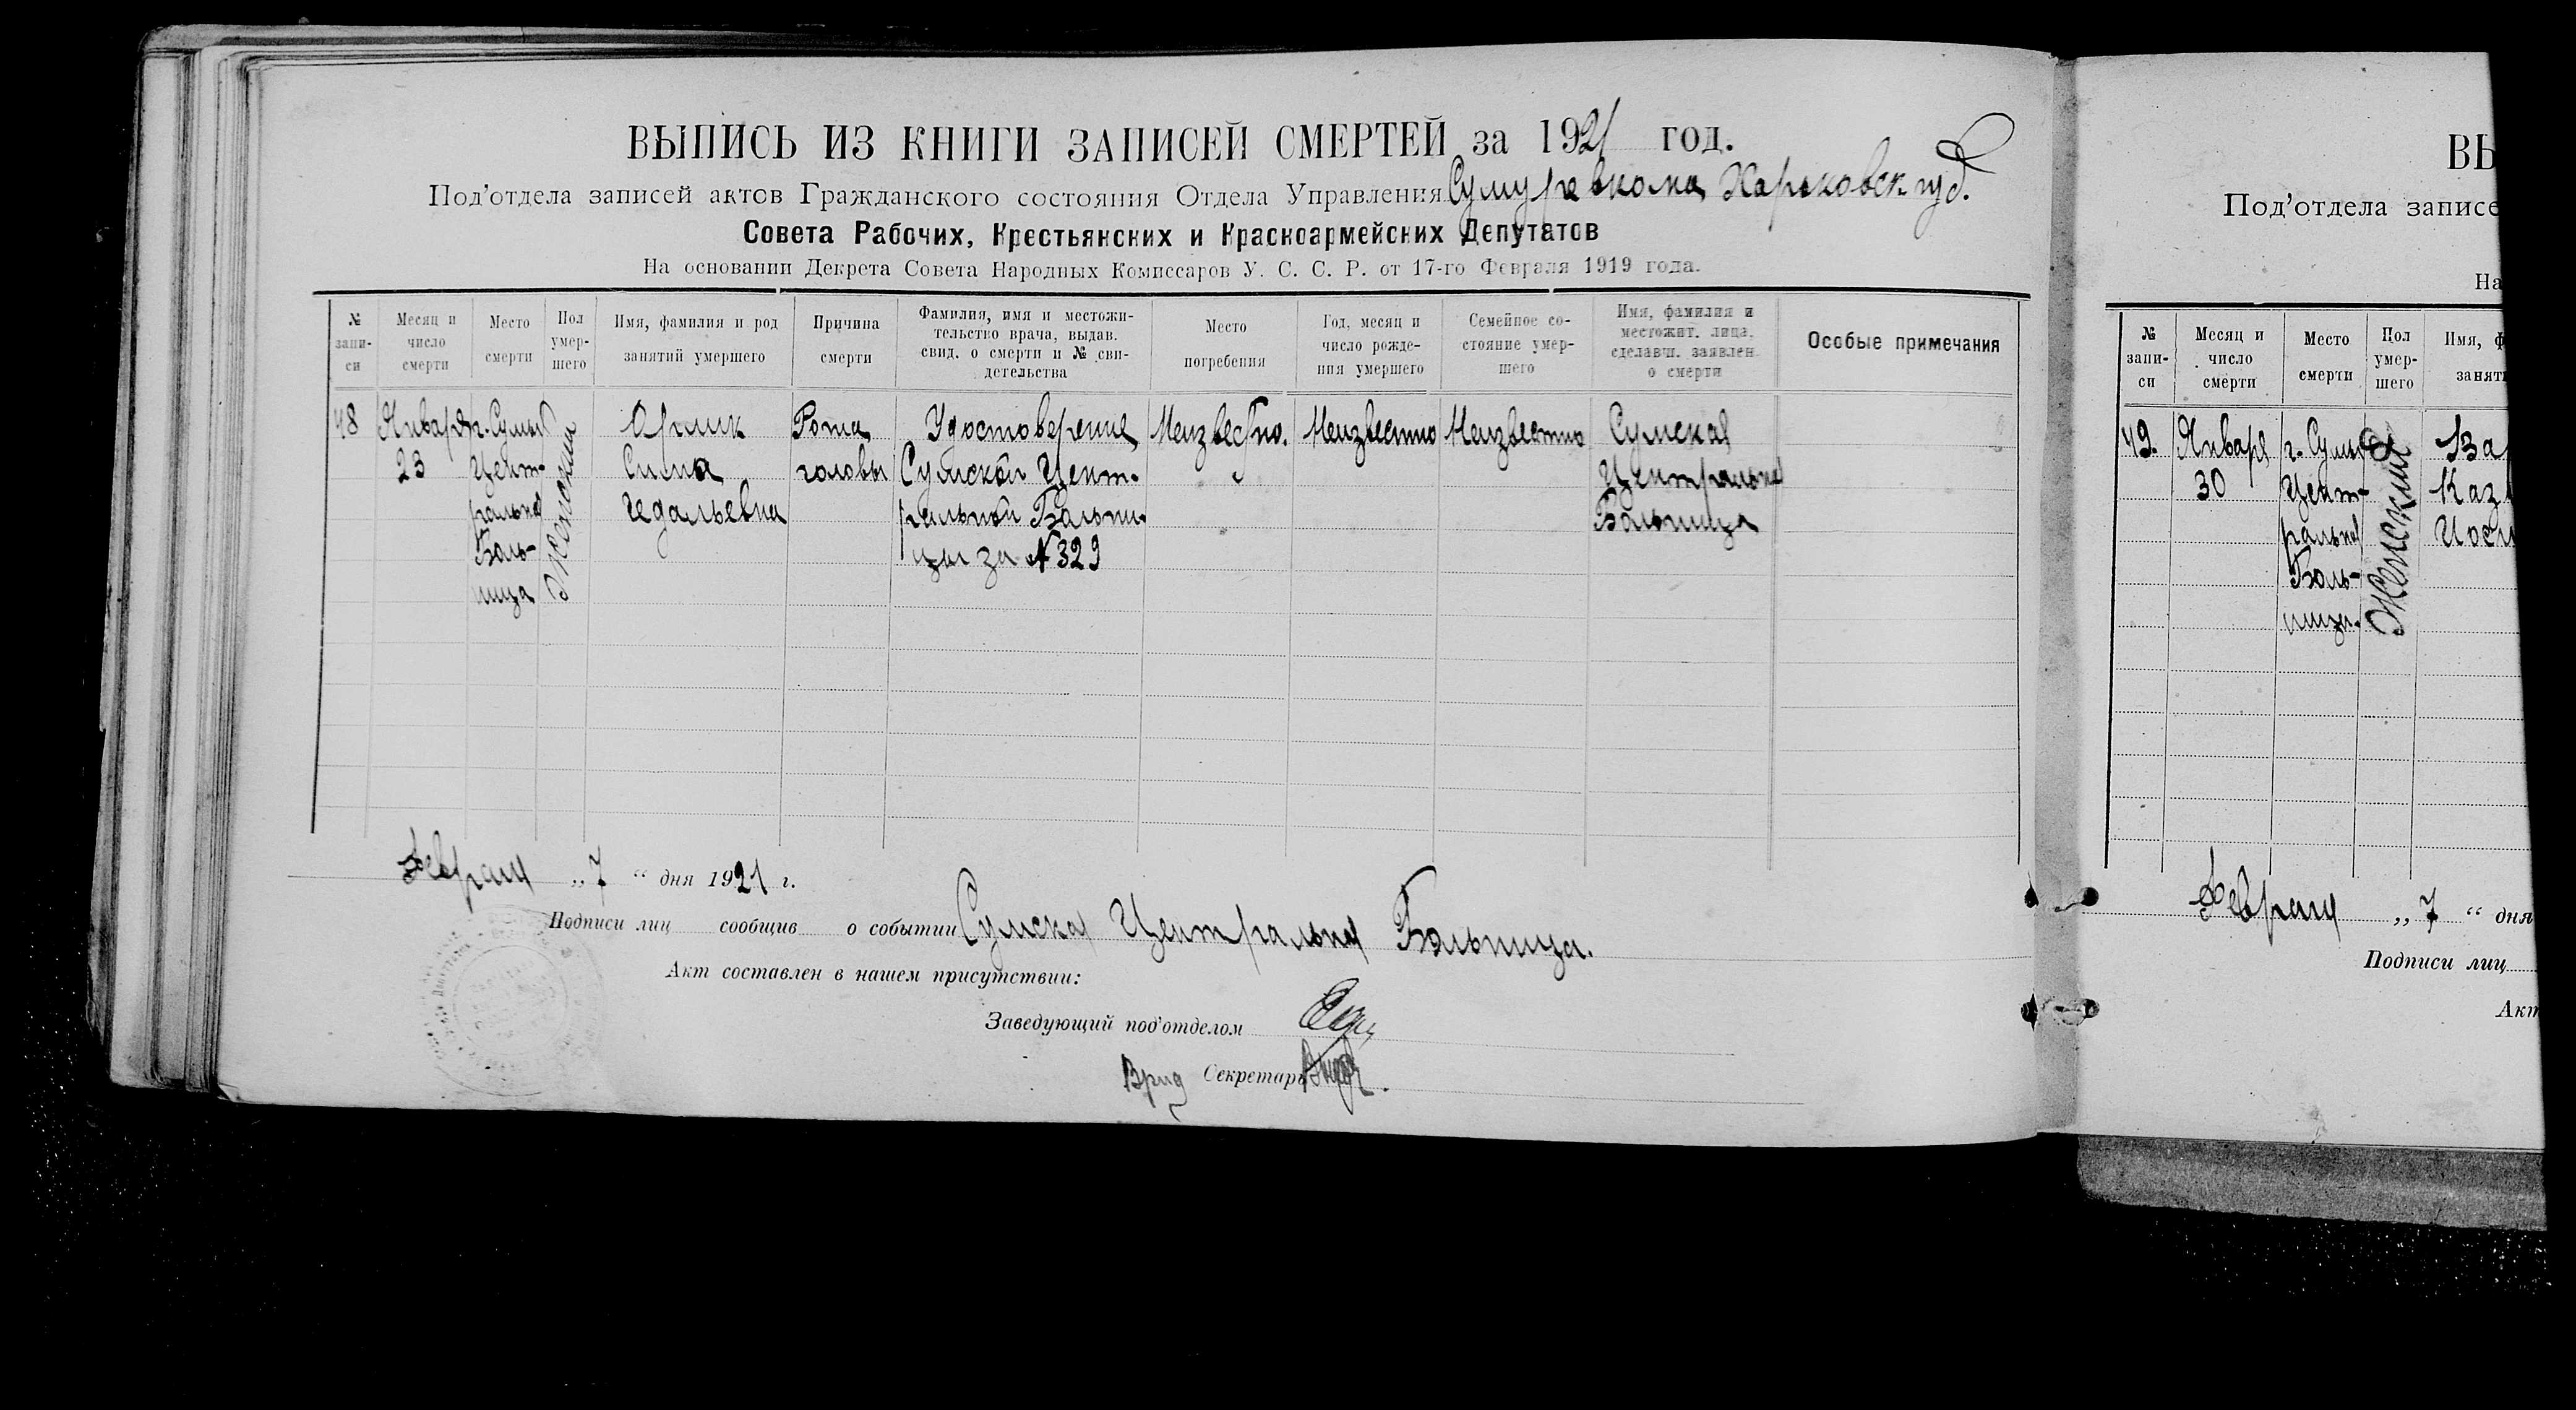 ВЫПИСЬ ИЗ КНИГИ ЗАПИСЕЙ СМЕРТЕЙ за 1921 год.
Под'отдела записей актов Гражданского состояния Отдела Управления Сумуревкома Харьковск губ.
Совета Рабочих, Крестьянских и Красноармейских Депутатов
На основании Декрета Совета Народных Комиссаров У. С. С. Р. от 17-го Февраля 1919 года.
№ запи-
си
Месяц и
число
смерти
Место
смерти
Пол
умер-
шего
Имя, фамилия и род
занятий умершего
Причина
смерти
Фамилия, имя и местожи-
тельство врача, выдав.
свид. о смерти и № сви-
детельства
Место
погребения
Год, месяц и
число рожде-
ния умершего
Семейное со-
стояние умер-
шего
Имя, фамилия и
местожит. лица,
сделавш. заявлен.
о смерти
Особые примечания
48
Января
23
г. Сумы
Цент-
ральная
Боль-
ница
Женский
Орлик
Сима
Гедальевна
Рожа
головы
Удостоверение
Сумской Цент-
ральной Больни-
цы за № 329
Неизвестно.
Неизвестно
Неизвестно
Сумская
Центральная
Больница
Февраля „ 7 “ дня 1921 г.
Подписи лиц сообщив о событии Сумская Центральная Больница.
Акт составлен в нашем присутствии:
Заведующий под'отделом
Врид Секретарь
ВЫ
Под'отдела записе
На
№
запи-
си
Месяц и
число
смерти
Место
смерти
Пол
умер-
шего
Имя, ф
занят
49.
Января
30
г. Сумы
Цент-
ральная
Боль-
ница.
Женский
Каз
Февраля „ 7 “ дня
Подписи лиц
Акт